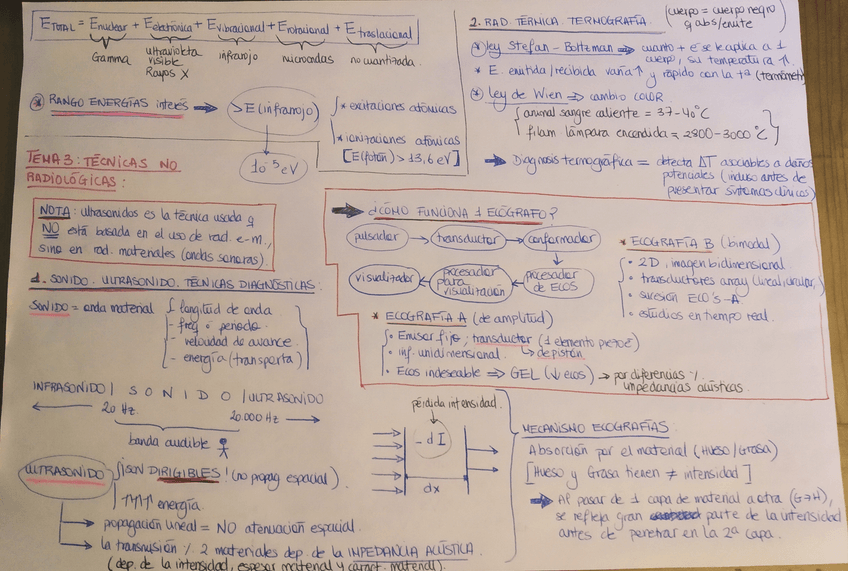 E TOTAL = Enuclear + Eelectrónica + Evibracional + Erotacional + Etraslacional
Gamma
ultravioleta
visible
Rayos X
infrarrojo
microondas
no cuantizada.
* RANGO ENERGÍAS interés → >E(infrarrojo)
10⁻⁵ eV
* excitaciones atómicas
* ionizaciones atómicas
[E(fotón) > 13,6 eV]
TEMA 3: TÉCNICAS NO
RADIOLÓGICAS:
NOTA: ultrasonidos es la técnica usada q
NO está basada en el uso de rad. e-m.,
sino en rad. materiales (ondas sonoras)
1. SONIDO. ULTRASONIDO. TÉCNICAS DIAGNÓSTICAS:
SONIDO = onda material
- longitud de onda
- freq. o periodo.
- velocidad de avance.
- energía (transporta)
INFRASONIDO | SONIDO | ULTRASONIDO
20 Hz
20.000 Hz
banda audible
ULTRASONIDO
¡SON DIRIGIBLES! (no propag espacial).
↑↑↑↑ energía.
→ propagación lineal = NO atenuación espacial.
→ la transmisión % 2 materiales dep. de la IMPEDANCIA ACÚSTICA.
(dep. de la intensidad, espesor material y caract. material).
2. RAD. TÉRMICA. TERMOGRAFÍA.
(cuerpo = cuerpo negro
q abs/emite)
* ley Stefan-Boltzman ⇒ cuanto + E se le aplica a 1
cuerpo, su temperatura ↑.
* E. emitida/recibida varía ↑ y rápido con la tª (termómetr
* ley de Wien ⇒ cambio COLOR.
animal sangre caliente = 37-40°C
filam lámpara encendida = 2800-3000°C
→ Diagnosis termográfica = detecta ΔT asociables a daños
potenciales (incluso antes de
presentar síntomas clínicos)
→ ¿CÓMO FUNCIONA 1 ECÓGRAFO?
pulsador → transductor → conformador
visualizador ← procesador para visualización ← procesador de ECOS
* ECOGRAFÍA B (bimodal)
• 2D, imagen bidimensional.
• transductores array (lineal, circular,)
• sucesión ECO'S-A.
• estudios en tiempo real.
* ECOGRAFÍA A (de amplitud)
• Emisor fijo; transductor (1 elemento piezoe)
↳ de pistón.
• inf. unidimensional.
• Ecos indeseable ⇒ GEL (↓ ecos) → por diferencias %
impedancias acústicas.
pérdida intensidad.
-dI
dx
MECANISMO ECOGRAFÍAS.
Absorción por el material (HUESO/GRASA)
[Hueso y Grasa tienen ≠ intensidad]
→ Al pasar de 1 capa de material a otra (G→H),
se refleja gran parte de la intensidad
antes de penetrar en la 2ª capa.